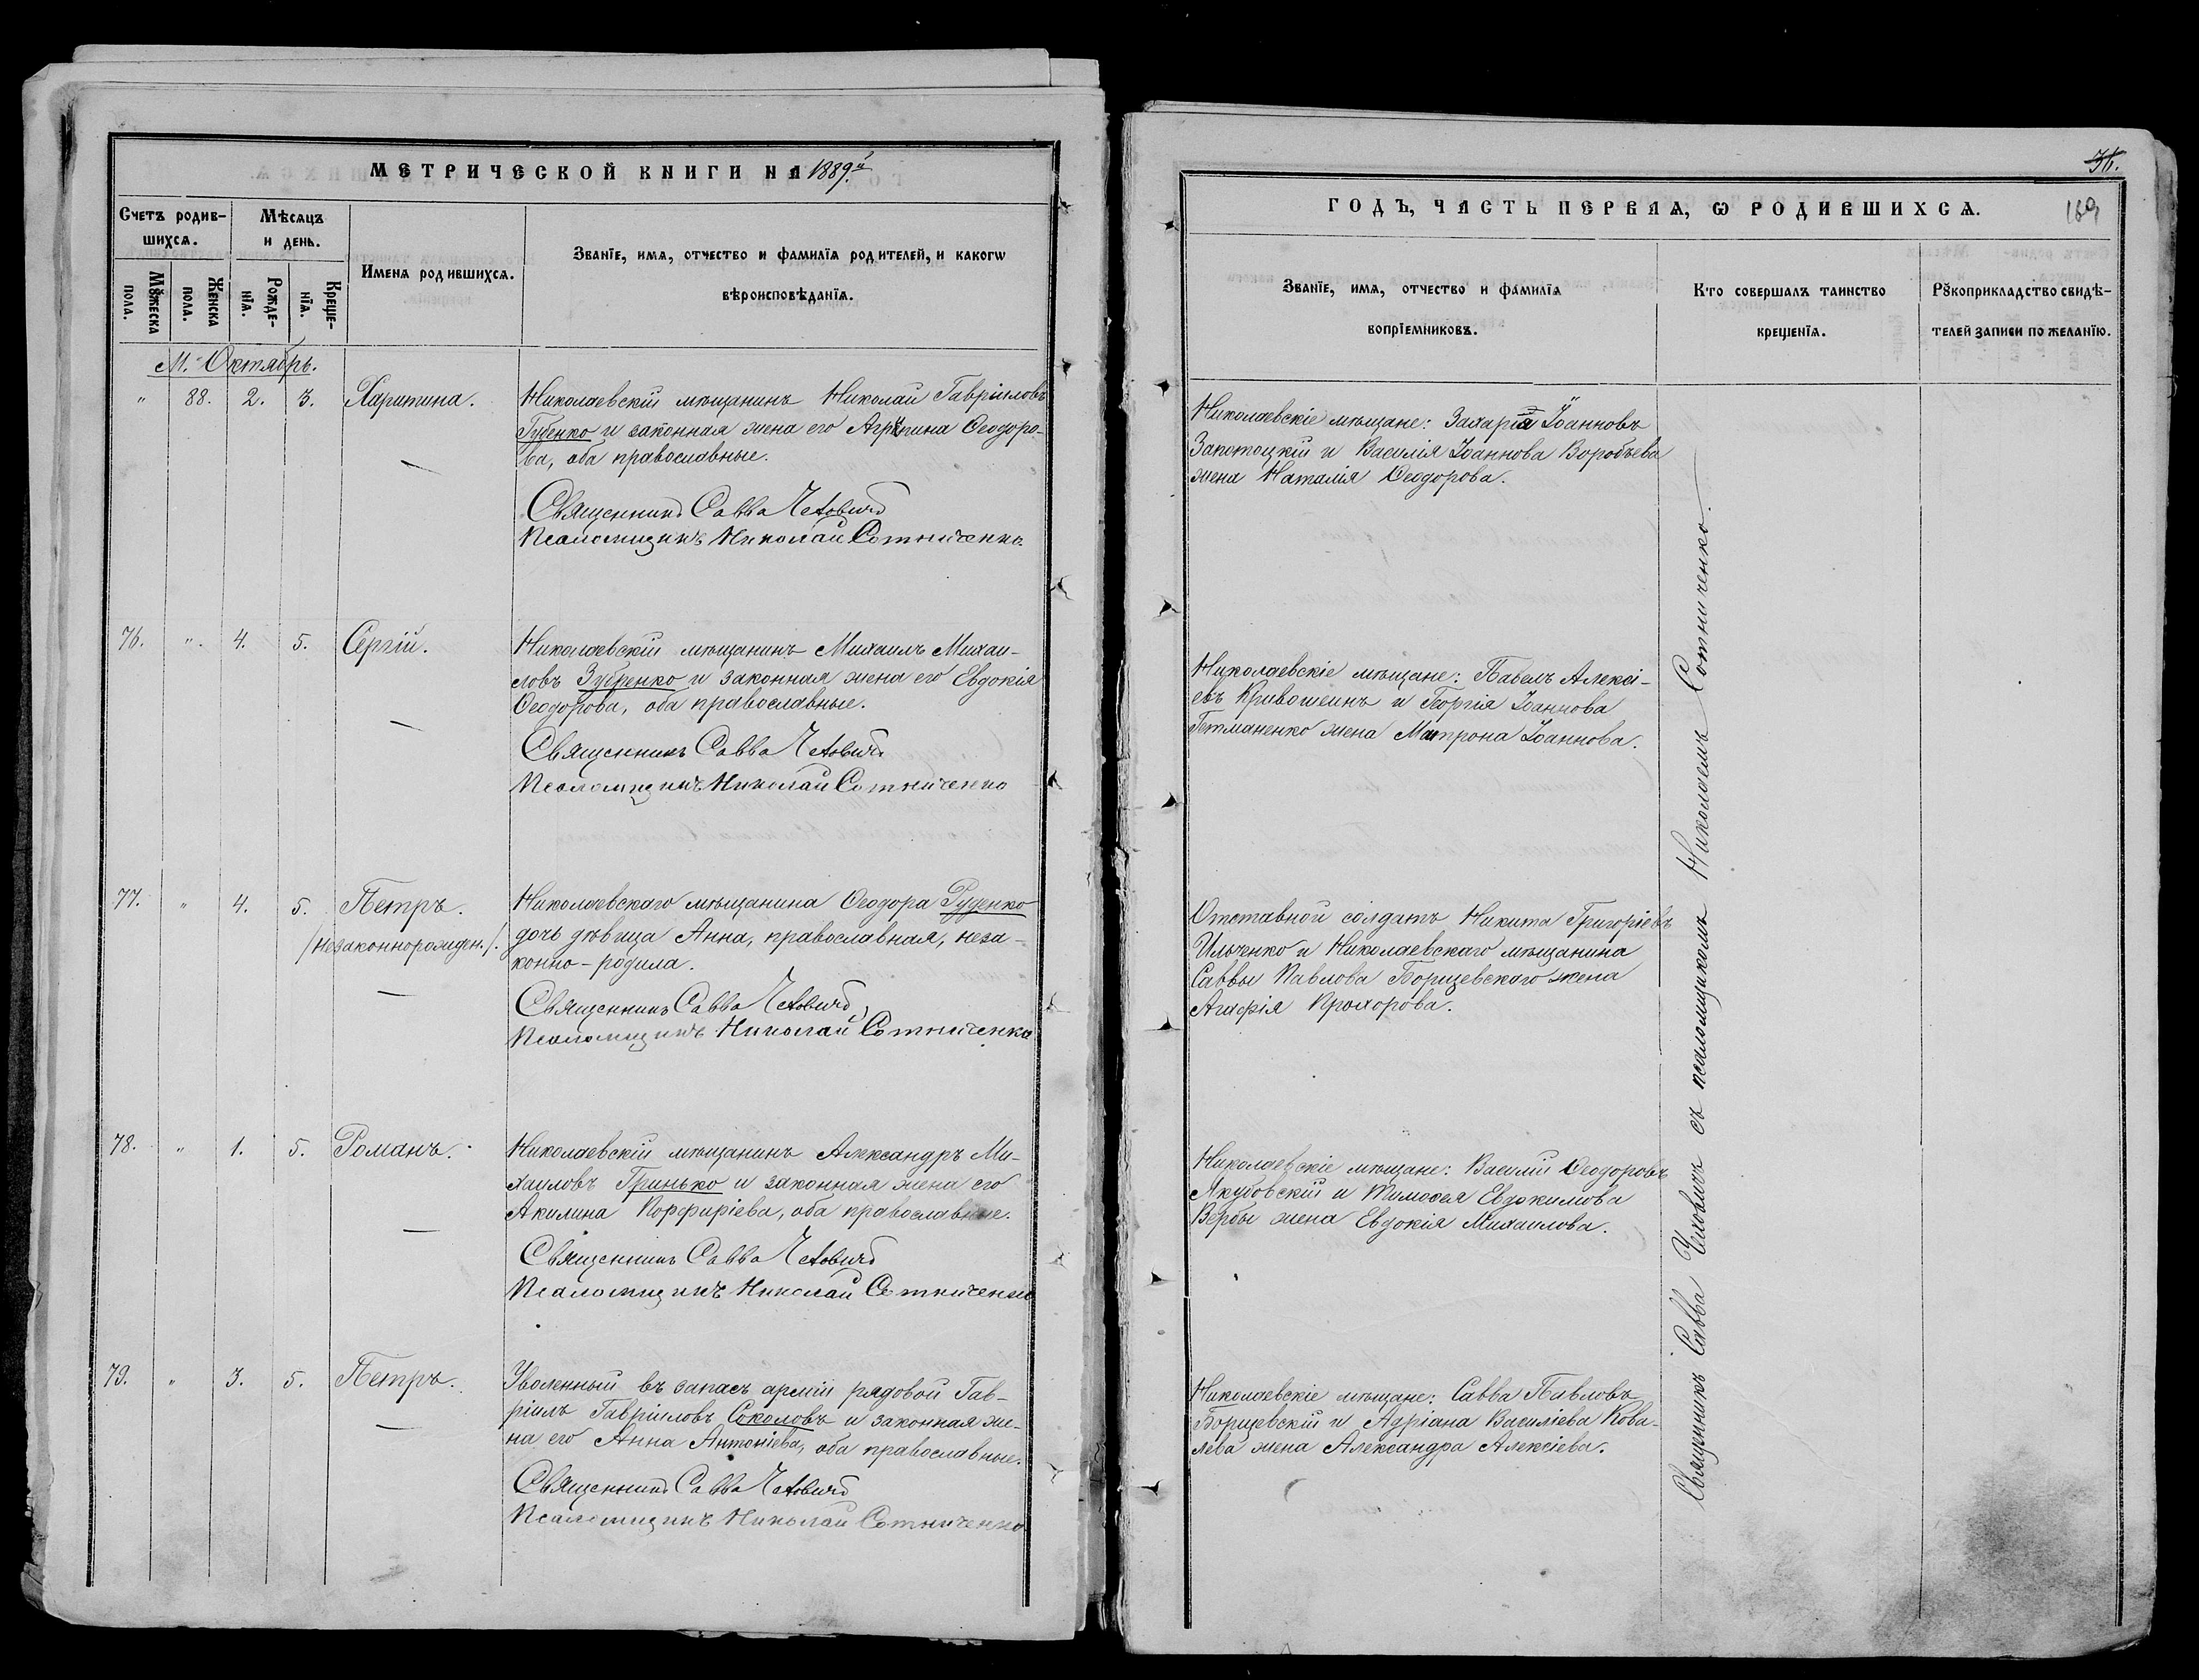 МЕТРИЧЕСКОЙ КНИГИ НА 1889.й
Счетъ родив-
шихсѧ.
Мѣсѧцъ
и день.
Мꙋжеска
пола.
Женска
пола.
Рожде-
нїѧ.
Креще-
нїѧ.
Имена родившихсѧ.
Званїе, имѧ, отчество и фамилїѧ родителей, и какогѡ
вѣроисповѣданїѧ.
М. Октябрь.
" 88. 2. 3. Харитина.
Николаевскій мѣщанинъ Николай Гавріиловъ
Губенко и законная жена его Агрипина Ѳеодоро-
ва, оба православные.
Священникъ Савва Чеховичъ
Псаломщикъ Николай Сотниченко.
76. " 4. 5. Сергій.
Николаевскій мѣщанинъ Михаилъ Михаи-
ловъ Зубренко и законная жена его Евдокія
Ѳеодорова, оба православные.
Священникъ Савва Чеховичъ
Псаломщикъ Николай Сотниченко
77. " 4. 5. Петръ.
/незаконнорожден./.
Николаевскаго мѣщанина Ѳеодора Руденко
дочь дѣвица Анна, православная, неза-
конно-родила.
Священникъ Савва Чеховичъ
Псаломщикъ Николай Сотниченко
78. " 1. 5. Романъ.
Николаевскій мѣщанинъ Александръ Ми-
хаиловъ Гринько и законная жена его
Акилина Порфиріева, оба православные.
Священникъ Савва Чеховичъ
Псаломщикъ Николай Сотниченко
79. " 3. 5. Петръ.
Уволенный въ запасъ арміи рядовой Гав-
ріилъ Гавріиловъ Соколовъ и законная же-
на его Анна Антоніева, оба православные.
Священникъ Савва Чеховичъ
Псаломщикъ Николай Сотниченко
169
ГОДЪ, ЧАСТЬ ПЕРВАѦ, Ѡ РОДИВШИХСѦ.
Званїе, имѧ, отчество и фамилїѧ
воспрїемниковъ.
Кто совершалъ таинство
крещенїѧ.
Рꙋкоприкладство свидѣ-
телей записи по желанїю.
Николаевскіе мѣщане: Захарій Іоанновъ
Закотоцкій и Василія Іоаннова Воробьева
жена Наталія Ѳеодорова.
Николаевскіе мѣщане: Павелъ Алексі-
евъ Кривошеинъ и Георгія Іоаннова
Гетманенко жена Матрона Іоаннова.
Отставной солдатъ Никита Григоріевъ
Ильченко и Николаевскаго мѣщанина
Саввы Павлова Борщевскаго жена
Агафія Прохорова.
Николаевскіе мѣщане: Василій Ѳеодоровъ
Якубовскій и Тимоѳея Евдокимова
Вербы жена Евдокія Михаилова.
Николаевскіе мѣщане: Савва Павловъ
Борщевскій и Адріана Василіева Кова-
лева жена Александра Алексіева.
Священникъ Савва Чеховичъ съ псаломщикомъ Николаемъ Сотниченко.